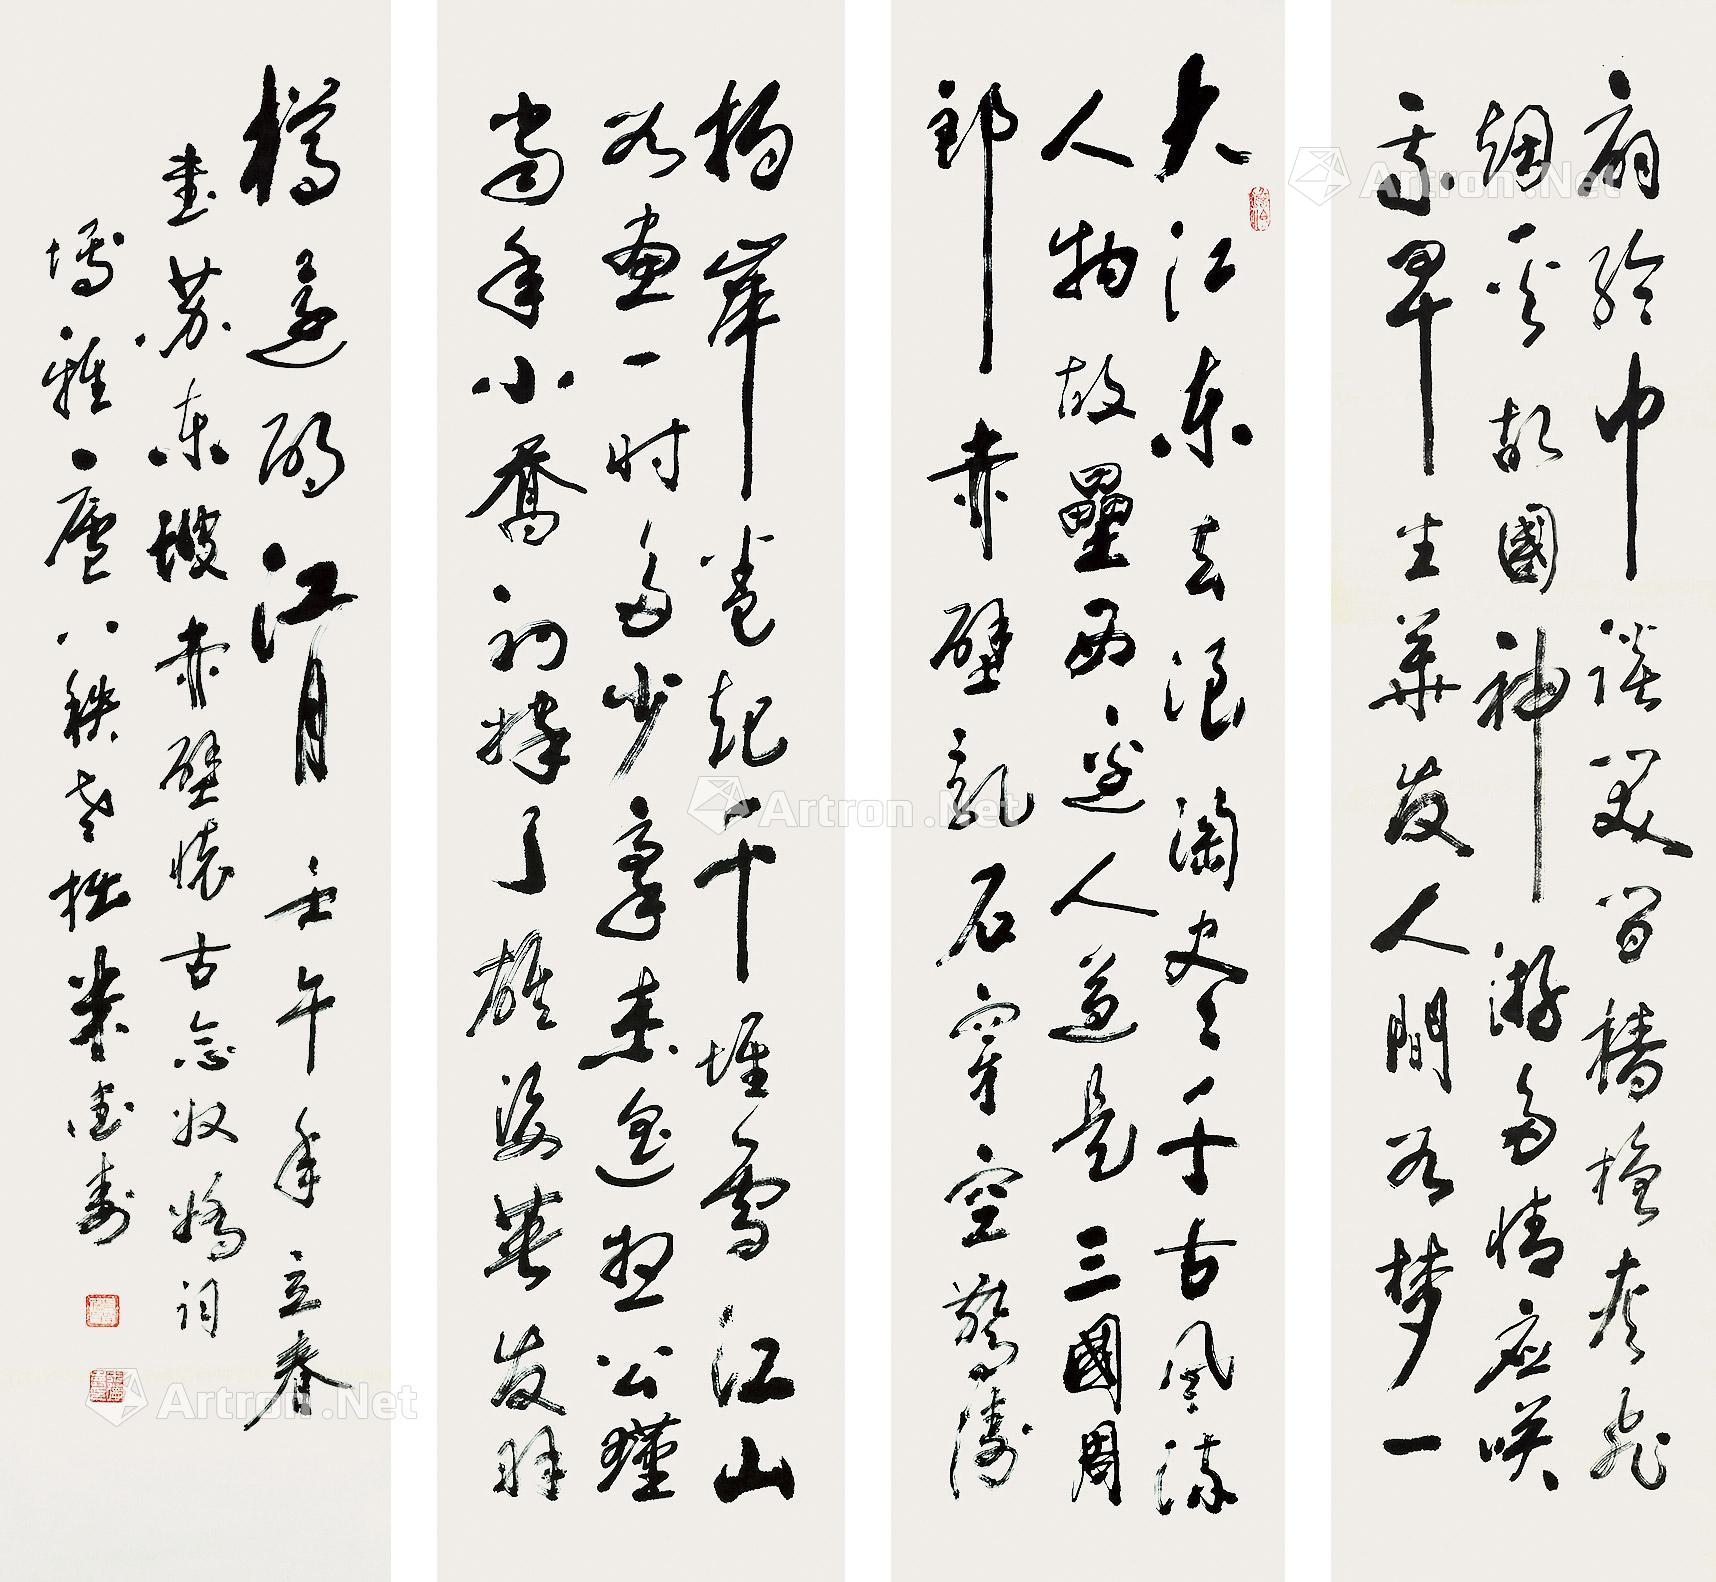 大江东去浪淘尽千古风流
人物故壘西边人道是三國周
郎赤壁乱石穿空驚涛
拍岸卷起千堆雪江山
如画一时多少豪杰遥想公瑾
当年小喬初嫁了雄姿英发羽
扇纶巾谈笑间樯橹灰飞
烟灭故國神游多情应笑
我早生華发人間如梦一
樽还酹江月壬午年立春
书苏东坡赤壁怀古念奴娇词
博雅一庐八秩老拙
Artron.Net
Artron.Net
Artron.Net